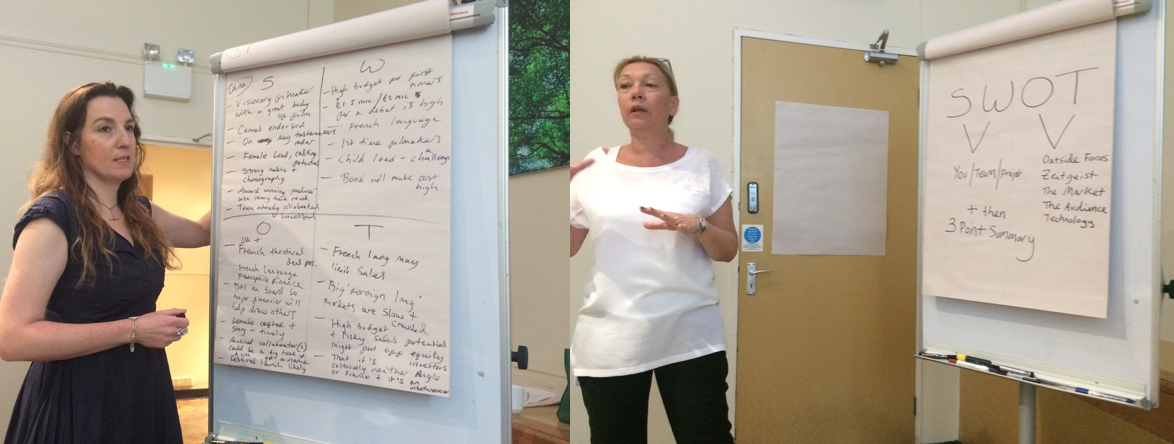 S
- Visionary filmmaker
with a great body
of film
- Cannes endorsed
on key tastemakers
radar
- Female Lead, casting
potential
- Strong music +
choreography
- Award winning producer
with strong track record
- Team already collaborated
W
- High budget for first
timers
- £1.5 mil / £2 mil
for a debut is high
- French language
- 1st time filmmakers
- Child lead - a challenge
- Bond will make cost
high
O
UK +
- French theatrical
deal
- French language
Francophile finance
- BFI on board so
major financier will
help draw others
- Female centred +
story - timely
- Musical collaborator(s)
could be a big hook if
got a name
- Festival launch likely
T
- French lang may
limit sales
- Big 'foreign lang'
markets are slow +
crowded
- High budget
+ risky sales potential
might put off equity
investors
- That it's
culturally neither Anglo
or France + it's an
inbetweener
SWOT
You/Team/Projet
+ then
3 Point Summary
Outside Forces
Zeitgeist
The Market
The Audience
Technology